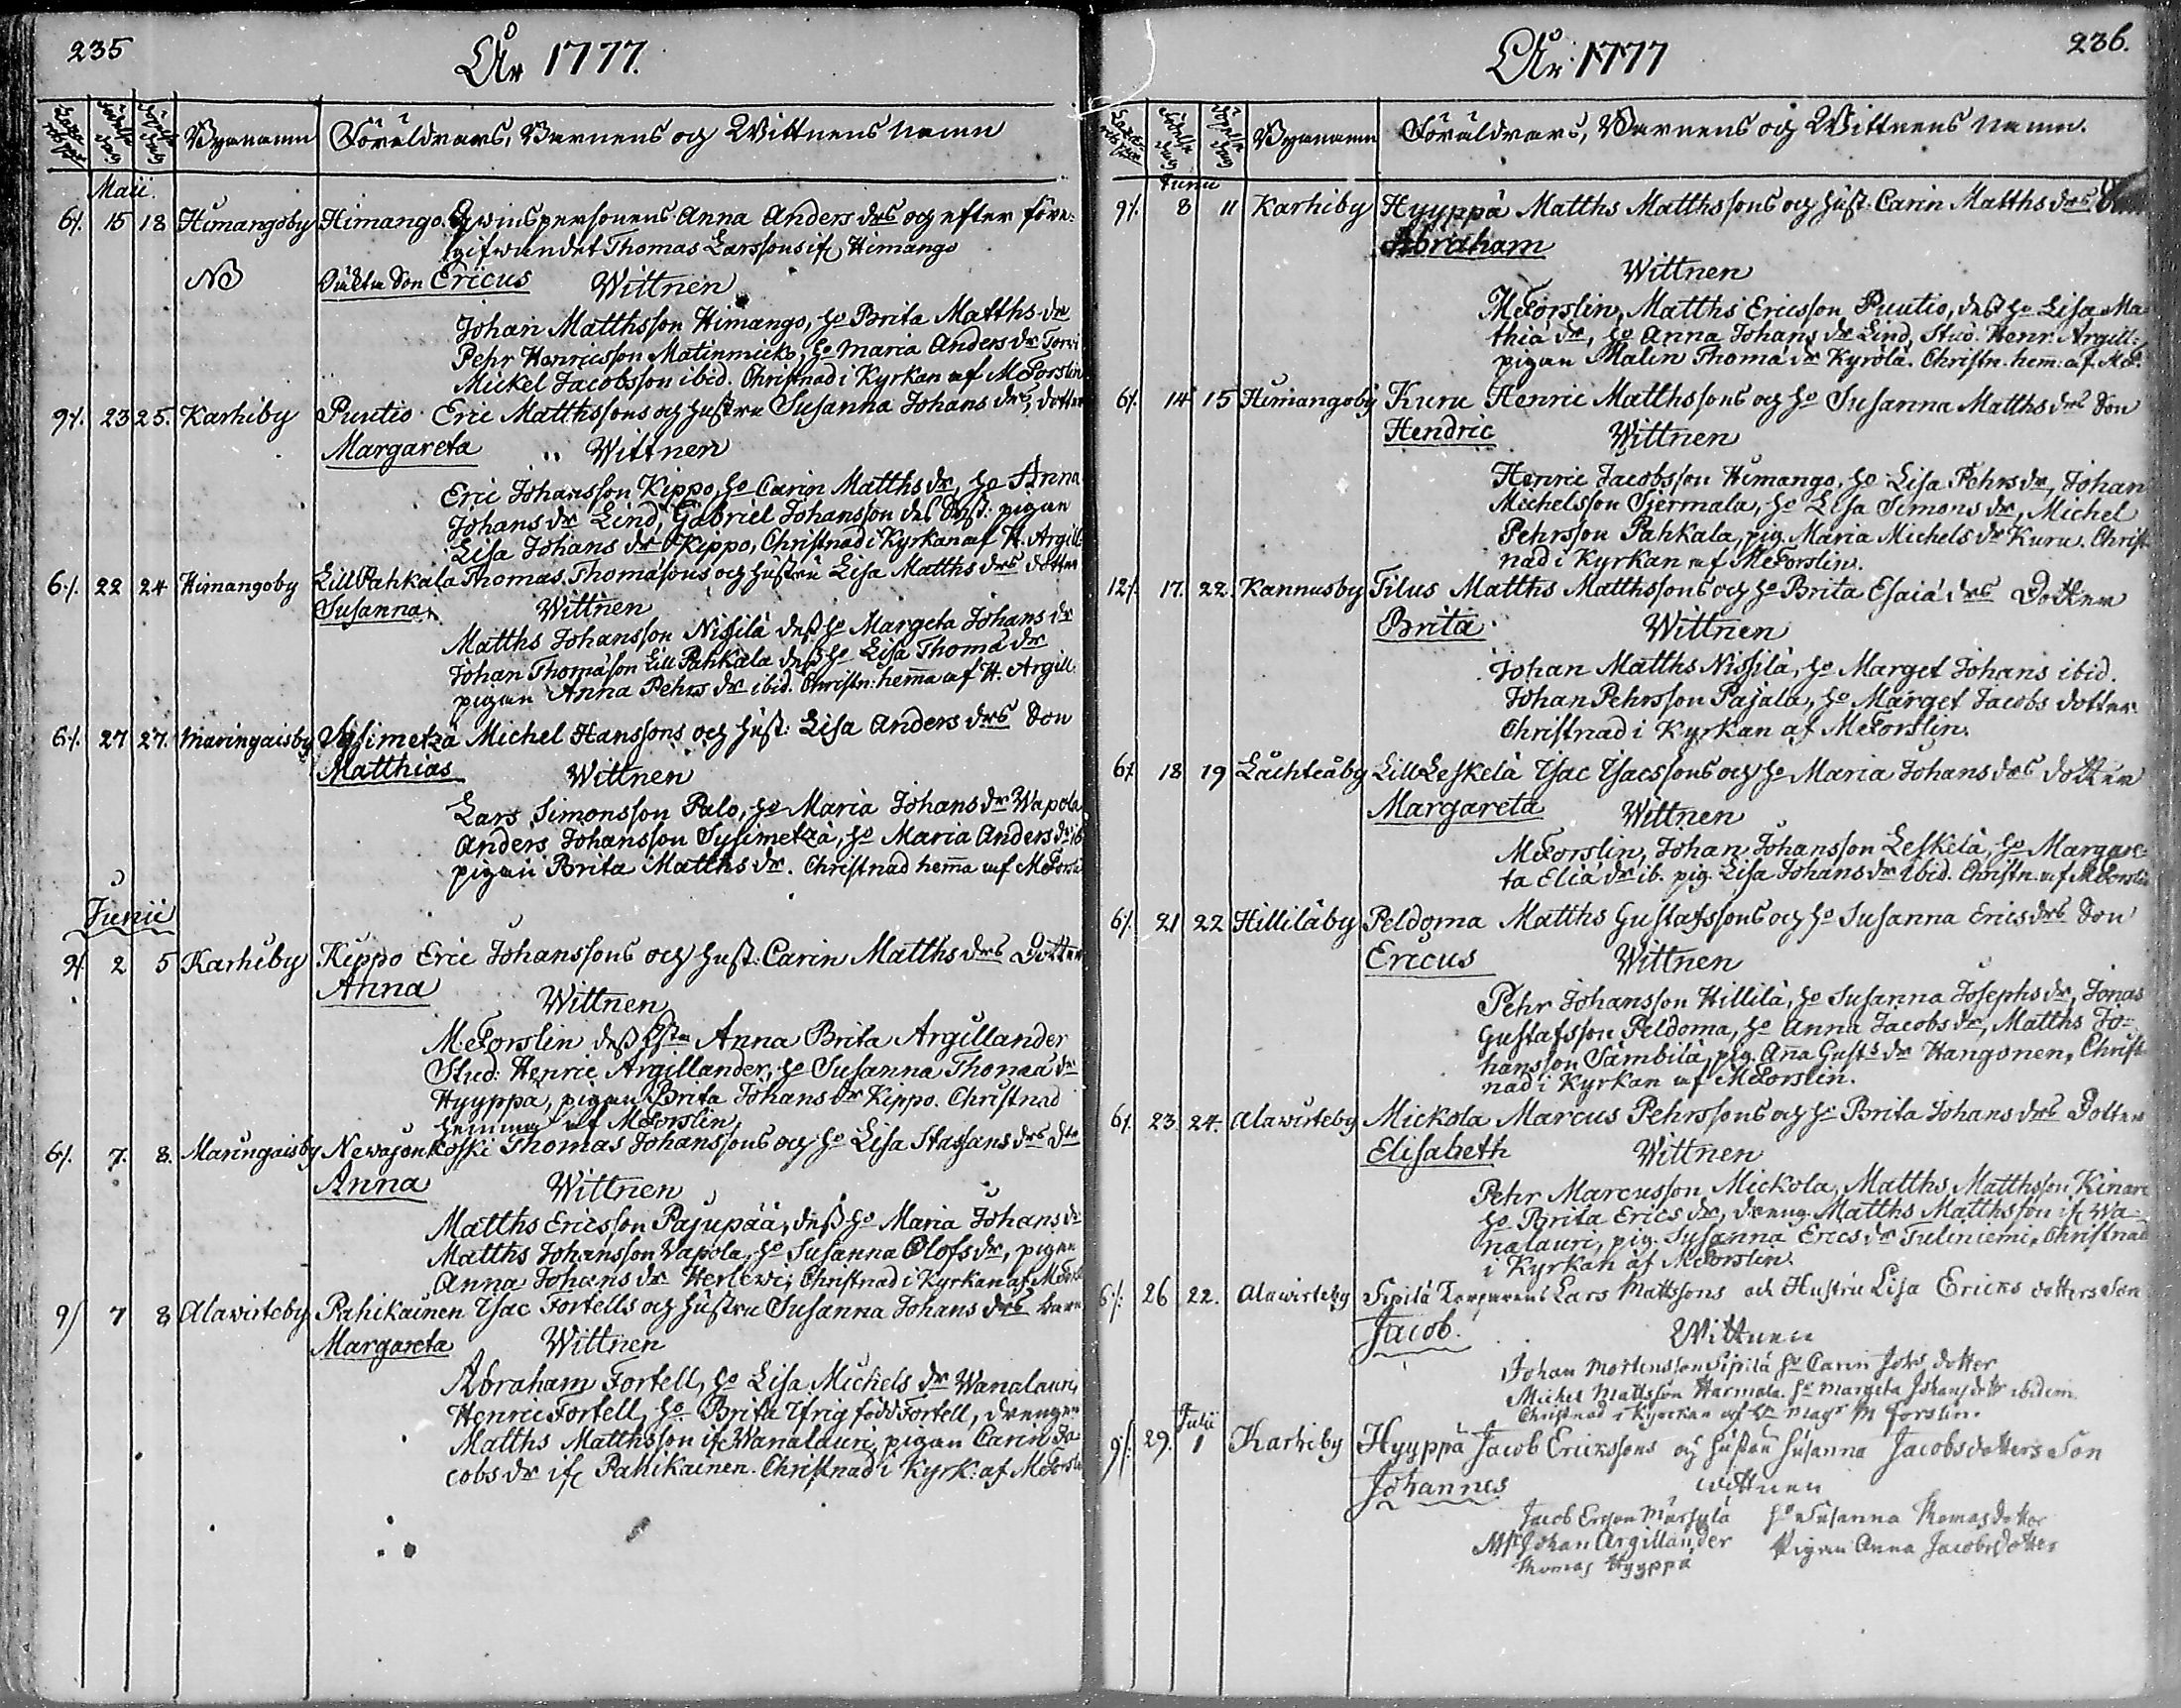 235
År 1777.
Födelse dag Döpelse dag Bynamn Föräldrars, Barnens och Wittnens namn
Maii.
6/. 15 18 Himangoby Himango. Qwinspersonens Anna Anders drs och efter före-
gifwandet Thomas Larssons if: Himango
NB oäkta Son Ericus Wittnen
Johan Matthsson Himango, ho Brita Matths dr
Pehr Henricsson Matinmicko, ho Maria Anders dr Torvi
Mickel Jacobsson ibid. Christnad i Kyrkan af M Forslin
9/. 23 25. Karhiby Puutio Eric Matthssons och hustru Susanna Johans drs, dotter
Margareta Wittnen
Eric Johansson Kippo, ho Carin Matths dr, ho Anna
Johans dr Lind, Gabriel Johansson pigan
Lisa Johans dr Kippo, Christnad i Kyrkan af H. Argill.
6/. 22 24 Himangoby Lill Pahkala Thomas Thomasons och hustru Lisa Matths drs dotter
Susanna Wittnen
Matths Johansson Nissilä dess ho Margeta Johans dr
Johan Thomason Lill Pahkala dess ho Lisa Thoma dr
pigan Anna Pehrs dr ibid. Christn: hemma af H. Argill.
6/. 27 27. Maringaisby Sysimetzä Michel Hanssons och hust: Lisa Anders drs Son
Matthias Wittnen
Lars Simonsson Palo, ho Maria Johans dr Wapola
Anders Johansson Sysimetzä, ho Maria Anders dr ib
pigan Brita Matths dr. Christnad hemma af M Forsl
Junii
9/. 2 5 Karhiby Kippo Eric Johanssons och hust: Carin Matths drs Dotter
Anna Wittnen
M. Forslin dess Anna Brita Argillander
Stud: Henric Argillander, ho Susanna Thomae dr
Hyyppä, pigan Brita Johans dr Kippo. Christnad
hemma af M Forslin
6/. 7. 8. Maringaisby Newasonkoski Thomas Johanssons och ho Lisa Staffans drs dtr
Anna Wittnen
Matths Ericsson Pajupää, dess ho Maria Johans dr
Matths Johansson Vapola, ho Susanna Olofs dr, pigan
Anna Johans dr Herlewi; Christnad i Kyrkan af M Forsl
9/ 7 8 Alawirteby Pahikainen Isac Fortells och hustru Susanna Johans drs barn
Margareta Wittnen
Abraham Fortell, ho Lisa Michels dr Wanalauri,
Henric Fortell, ho Brita Ifrig född Fortell, drengen
Matths Matthsson if: Wanalauri, pigan Carin Ja-
cobs dr if: Pahikainen. Christnad i Kyrk: af M Forsl
236.
År 1777
Födelse dag Döpelse dag Bynamn Föräldrars, Barnens och Wittnens namn.
Junii
9/. 8 11 Karhiby Hyyppä Matths Matthssons och hust: Carin Matths drs
Abraham
Wittnen
M Forslin, Matths Ericsson Puutio, dess ho Lisa Ma-
thiä dr, ho Anna Johans dr Lind, Stud. Henr. Argill.
pigan Malin Thomä dr Kyrölä. Christn. hem: af M F.
6/. 14 15 Himangoby Kuru Henric Matthssons och ho Susanna Matths drs Son
Hendric Wittnen
Henric Jacobsson Himango, ho Lisa Pehrs dr, Johan
Michelsson Tiermala, ho Lisa Simons dr, Michel
Pehrsson Pahkala, pig. Maria Michels dr Kuru. Christ
nad i Kyrkan af M Forslin.
12/. 17. 22. Kannusby Tilus Matths Matthssons och ho Brita Esaiä drs Dotter
Brita Wittnen
Johan Matths Nissilä, ho Marget Johans ibid.
Johan Pehrsson Pajala, ho Marget Jacobs dotter
Christnad i Kyrkan af M Forslin.
6/. 18 19 Lächteäby Lill Leskelä Isac Isacssons och ho Maria Johans drs dotter
Margareta Wittnen
M Forslin, Johan Johansson Leskelä, ho Margare-
ta Eliä dr ib. pig. Lisa Johans dr ibid. Christn. af M Forslin
6/. 21 22 Hilliläby Peldoma Matths Gustafssons och ho Susanna Erics drs Son
Ericus Wittnen
Pehr Johansson Hillilä, ho Susanna Josephs dr, Jonas
Gustafsson Peldoma, ho Anna Jacobs dr, Matths Jo-
hansson Sämbilä, pig. Anna Gust:s dr Hangonen, Christ
nad i Kyrkan af M Forslin.
6/. 23. 24. Alawirteby Mickola Marcus Pehrssons och ho Brita Johans drs Dotter
Elisabeth Wittnen
Pehr Marcusson Mickola, Matths Matthsson Kinare
ho Brita Erics dr, dreng. Matths Matthsson if: Wa-
nalauri, pig. Susanna Erics dr Tuliniemi, Christnad
i Kyrkan af M Forslin.
6/. 26 22. Alawirteby Sipilä Torparens Lars Mattssons och Hustru Lisa Ericks dotters Son
Jacob. Wittnen
Johan Mortensson Sipilä ho Carin Johs dotter
Michel Mattsson Harmala. ho Margeta Johans dotr ibidem
Christnad i Kyrckan af Hr Magr M Forslin.
Julii
9/. 29. 1 Karhiby Hyyppä Jacob Erickssons och hustru Susanna Jacobsdotters Son
Johannes Wittnen
Jacob Ersson Märsylä ho Susanna Thomasdotter
Johan Argillander Pigan Anna Jacobsdotter
Thomas Hyyppä